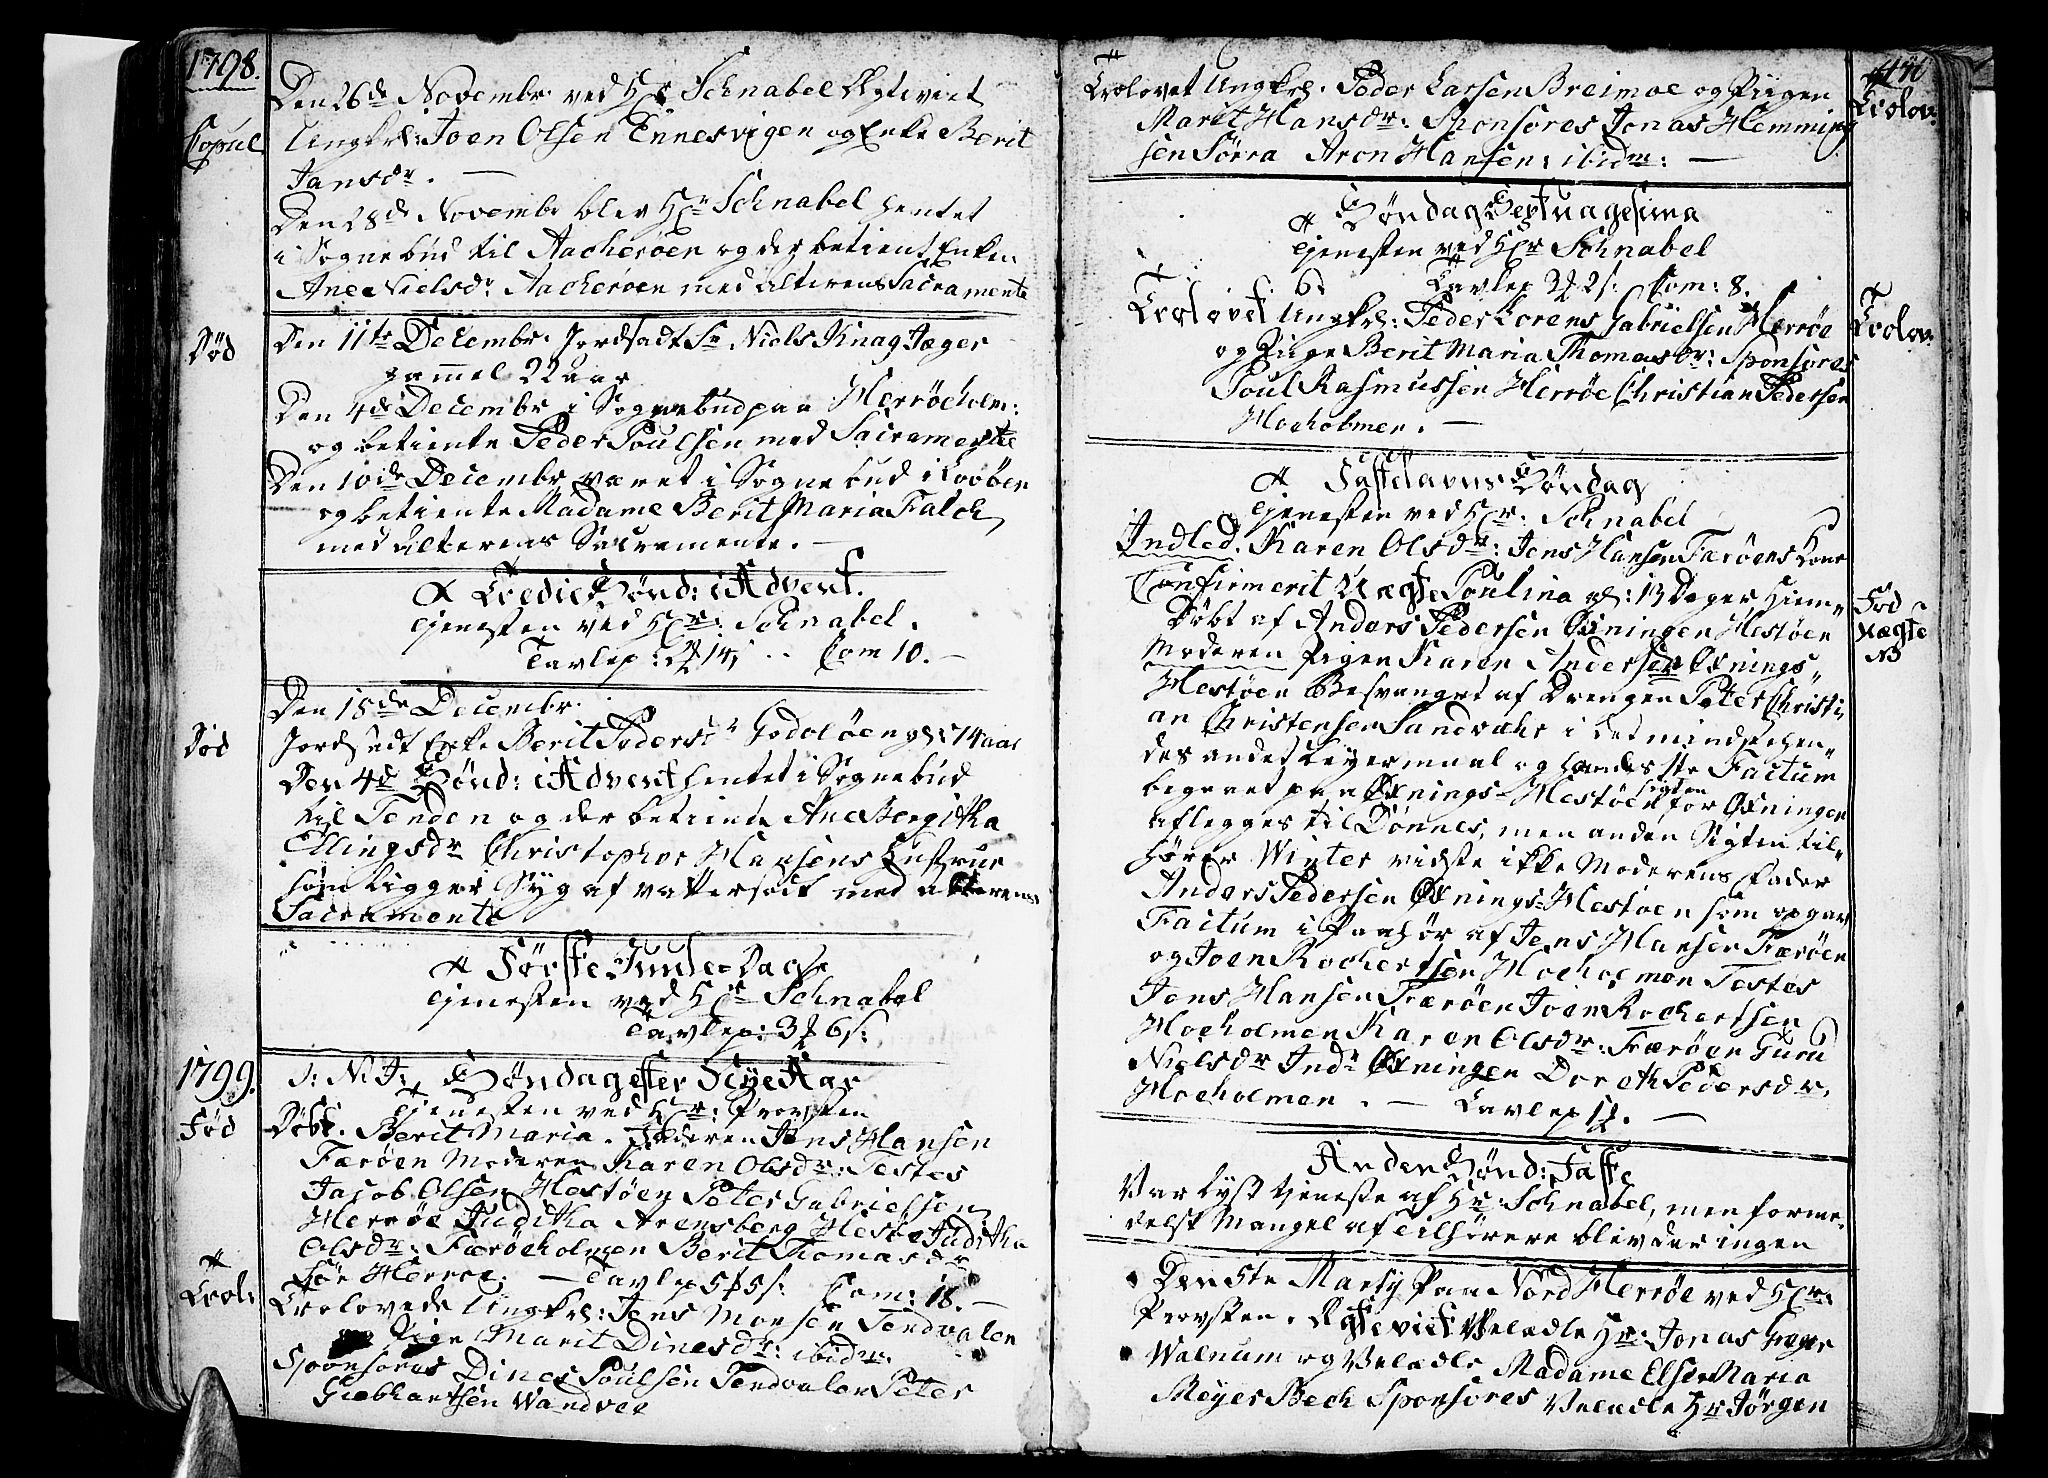 1798.
Den 26de Novembr. ved Hr Schnabel Ægteviet
Copul.
Ungkrl: Joen Olsen Ennesvigen og Enke Berit
Jansdr. —
Den 28de Novembr blev Hr Schnabel hentet
i Sognebud til Aacherøen og der betient Enken
Ane Nielsdr Aacherøen med Alterens Sacramente
Død
Den 11te Decembr. Jordsadt Sr Niels Knag Jæger
gammel 22 aar
Den 4de Decembr i Sognebud paa Herrøeholm:
og betiente Peder Poulsen med Sacramente
Den 10de Decembr været i Sognebud i
og betiente Madame Berit Maria Falch
med Alterens Sacramente. —
Tredie Sønd: i Advent.
Tjenesten ved Hr: Schnabel.
Tavlep: 14 Com 10. —
Den 18de Decembr.
Død
Jordsadt Enke Berit Pedersdr Godoløen gl: 74 aar
Den 4de Sønd: i Advent hentet i Sognebud
til Tenden og der betiente Ane Bergitha
Ellingsdr Christopher Hansens Hustrue
som ligger Syg af Vattersodt med Alterens
Sacramente
Første Juule Dag
Tjenesten ved Hr Schnabel
Tavlep: 3 6 s:
1799.
I: N: J: Søndag efter Nye Aar
Tjenesten ved Hr: Provsten
Fød
Døbt. Berit Maria. Faderen Jens Hansen
Færøen Moderen Karen Olsdr: Testes
Jacob Olsen Hestøen Peter Gabrielsen
Herrøe Juditha Arensberg Hestøe Juditha
Olsdr: Færøeholmen Berit Thomasdr
Sør Herrøe. — Tavlep 5 5 s: Com: 18. —
Trol:
Trolovede Ungkrl: Jens Monsen Tendvalen
Pige Marit Dinesdr: ibidm:
Sponsores Dines Poulsen Tendvalen Peter
Giebhartsen Wandvee
Trolovet Ungkrl. Peder Larsen Breimoe og Piigen
Trolov:
Marit Hansdr: Sponsores Jonas Hemming
sen Sørra Aron Hansen: ibidm: —
Søndag Septuagesima
Tjenesten ved Hr Schnabel
Tavlep 3 2 s: Com: 8.
Trolovet Ungkrl: Peder Lorens Gabrielsen Herrøe
Trolov:
og Pige Berit Maria Thomasdr: Sponsores
Poul Rasmussen Herrøe Christian Pedersen
Hoeholmen. —
Fastelavns Søndag
Tjenesten ved Hr: Schnabel
Indled. Karen Olsdr: Jens Hansen Færøens Kone
Confirmerit Uægte Poulina gl: 13 Dager Hiem
Fød
Døbt af Anders Pedersen Øxningen Hestøen
Uægte
Moderen Pigen Karen Andersdr Øxnings
NB
Hestøen Besvangret af Drengen Peter Christi
an Christensen Sandvæhr i det mindste hen
des andet Leyermaal og hendes 1te Factum
begaaet paa Øxnings-Hestøen sigten for Øxningen
aflegges til Dønnes, men anden Sigten til
hører Winter vidste ikke Moderens Fader
Anders Pedersen Øxnings-Hestøen som opgav
Factum i Paahør af Jens Hansen Færøen
og Joen Rochertsen Hoeholmen Testes
Jens Hansen Færøen Joen Rochertsen
Hoeholmen Karen Olsdr: Færøen Guru
Nielsdr Indr Øxningen Doreth Pedersdr.
Hoeholmen. — Tavlep 1. —
Anden Sønd: Faste
Var lyst Tjeneste af Hr: Schnabel, men forme
delst Mangel af Tilhørere blev der ingen
Den 5te Martij paa Nord Herrøe ved Hr:
Provsten. Ægteviet Veledle Hr: Jonas Coge
Walnum og Veledle Madame Elsen Maria
Meyer Bech Sponsores Veledle Hr Jørgen